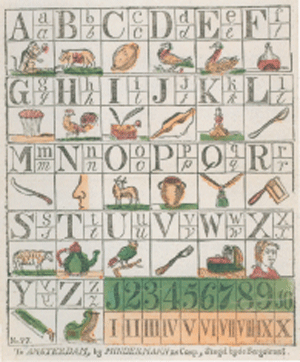 A a a B b b C c c D d d E e e F f f
G g g H h h I i i J j j K k k L l l
M m m N n n O o o P p p Q q q R r r
S s s T t t U u u V v v W w w X x x
Y y y Z z z 1 2 3 4 5 6 7 8 9 10
I II III IV V VI VII VIII IX X
Te AMSTERDAM, by HINDERMANN en Comp.